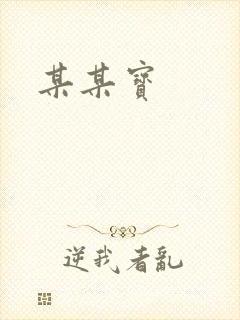 某某寶
逆我者亂